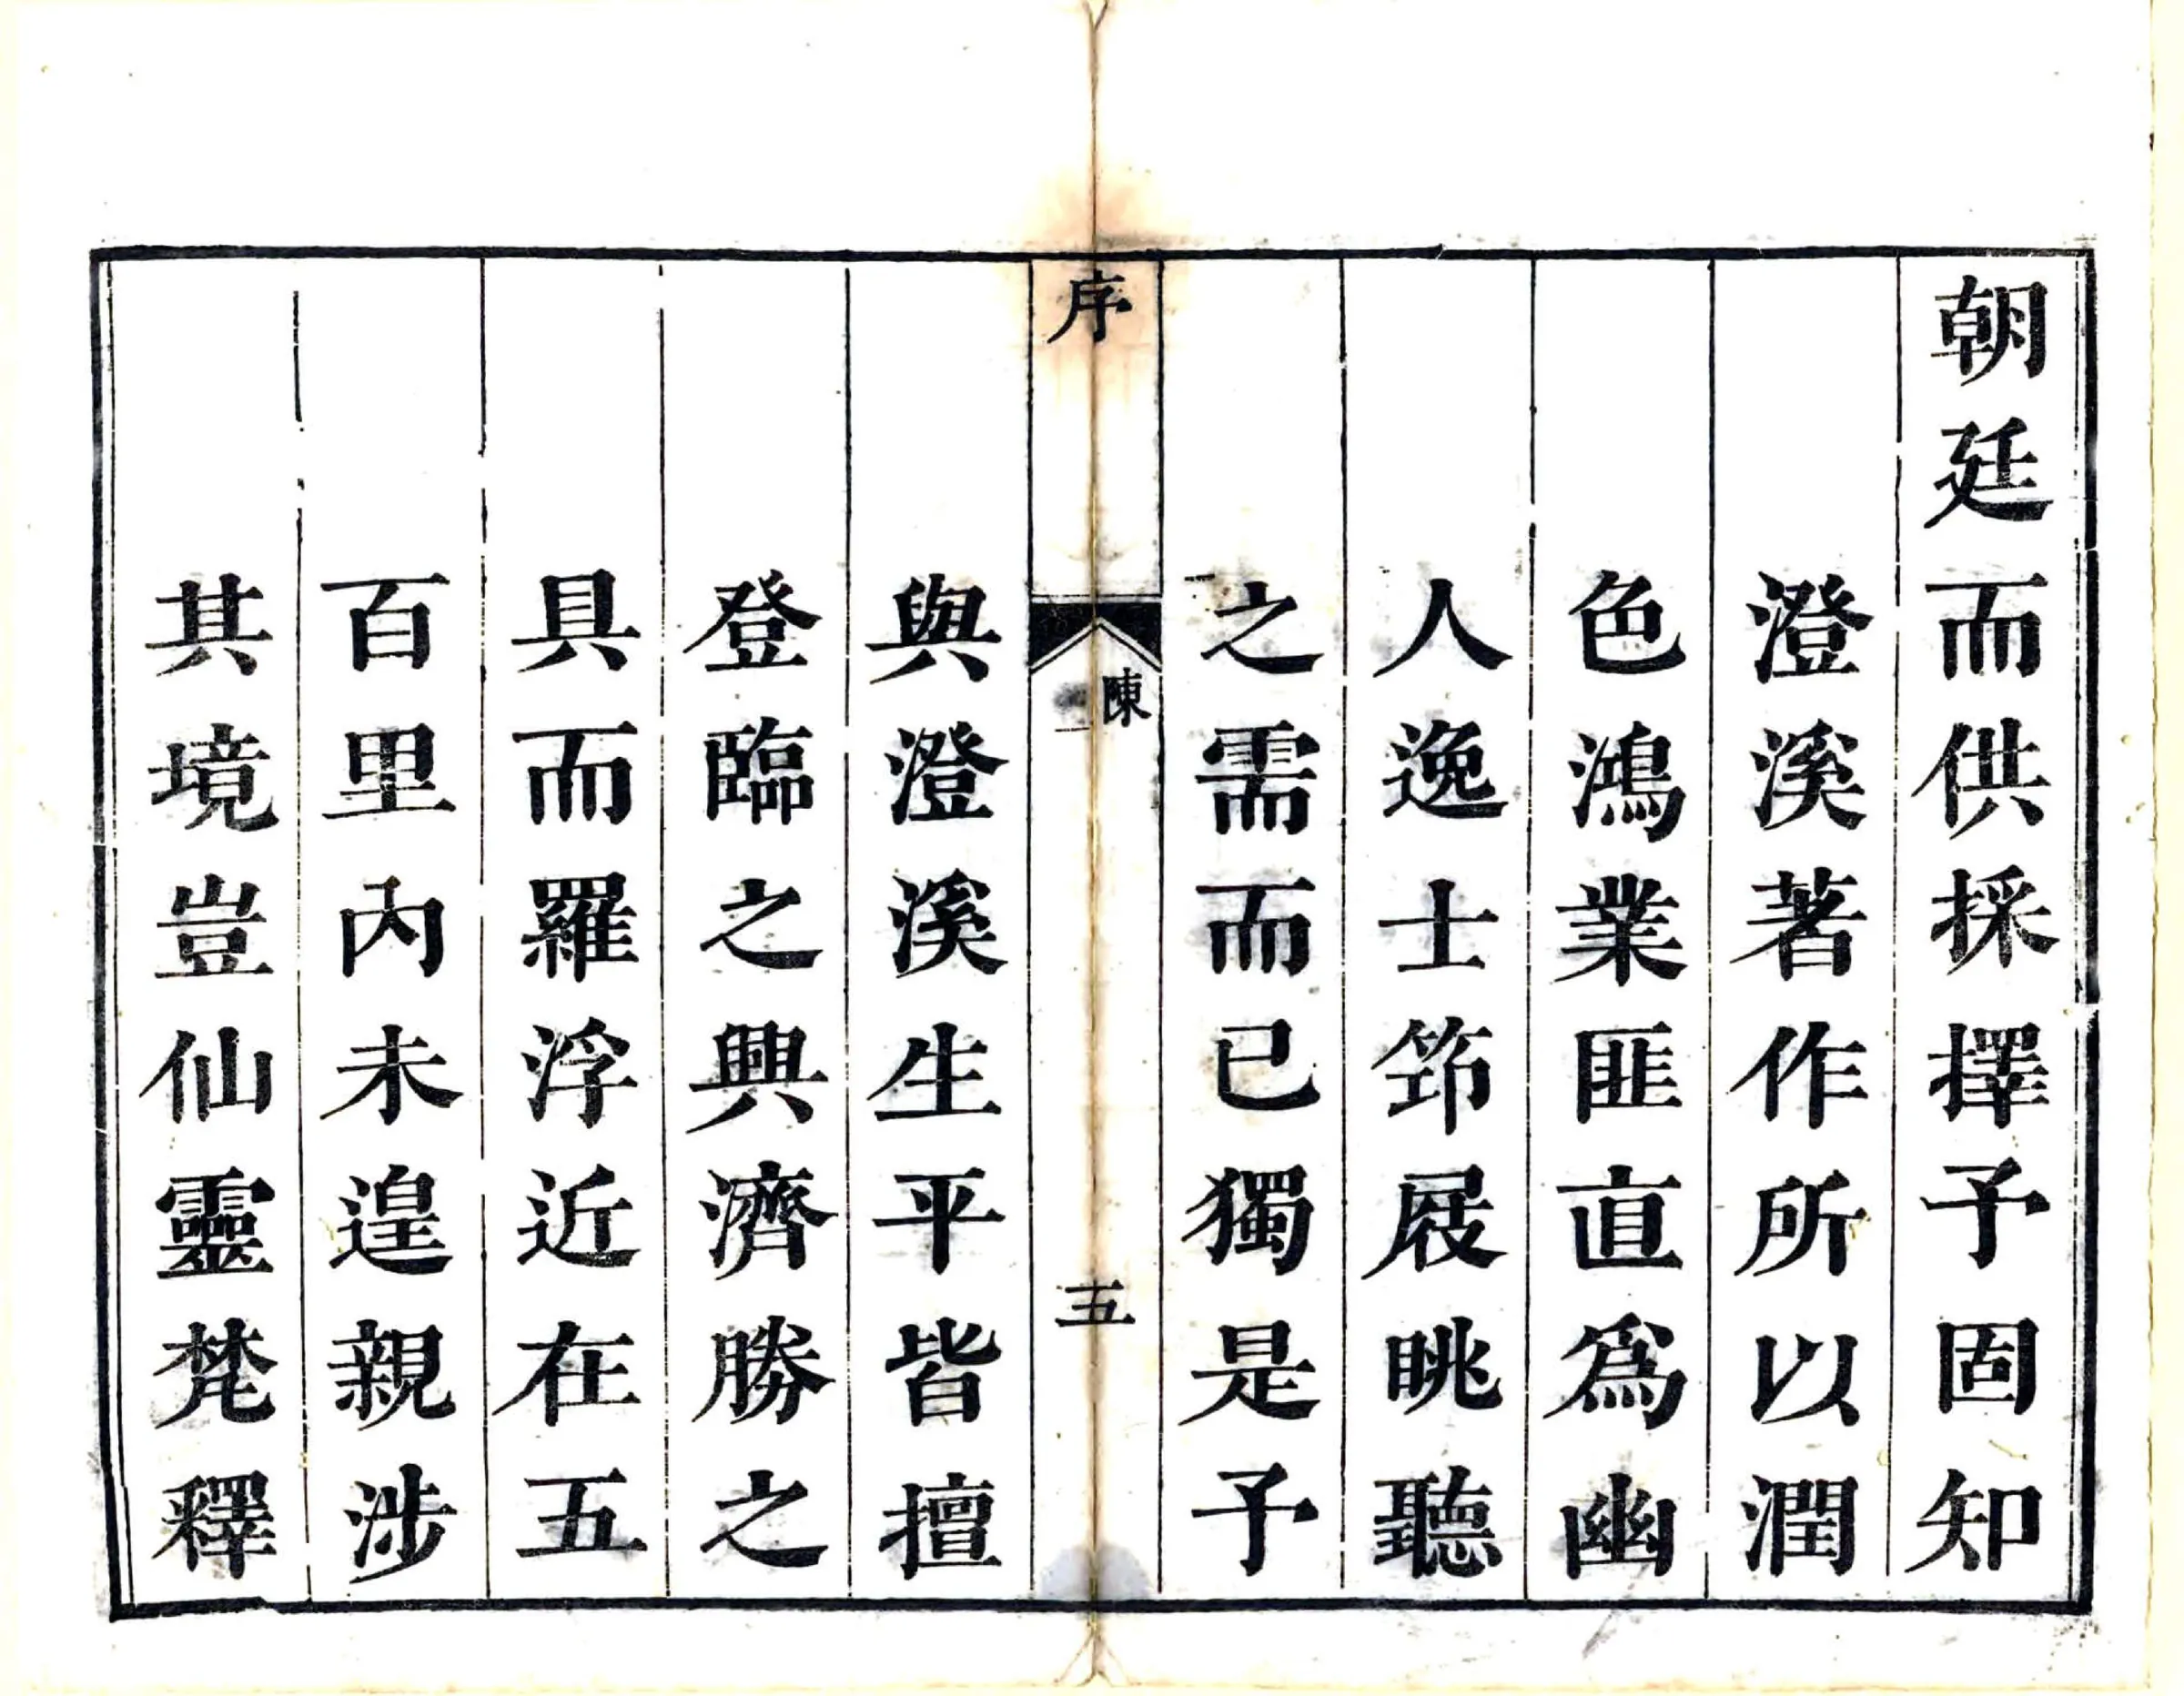 朝廷而供採擇予固知
澄溪著作所以潤
色鴻業匪直為幽
人逸士筇屐眺聽
之需而已獨是予
序
陳
五
與澄溪生平皆擅
登臨之興濟勝之
具而羅浮近在五
百里內未遑親涉
其境豈仙靈梵釋